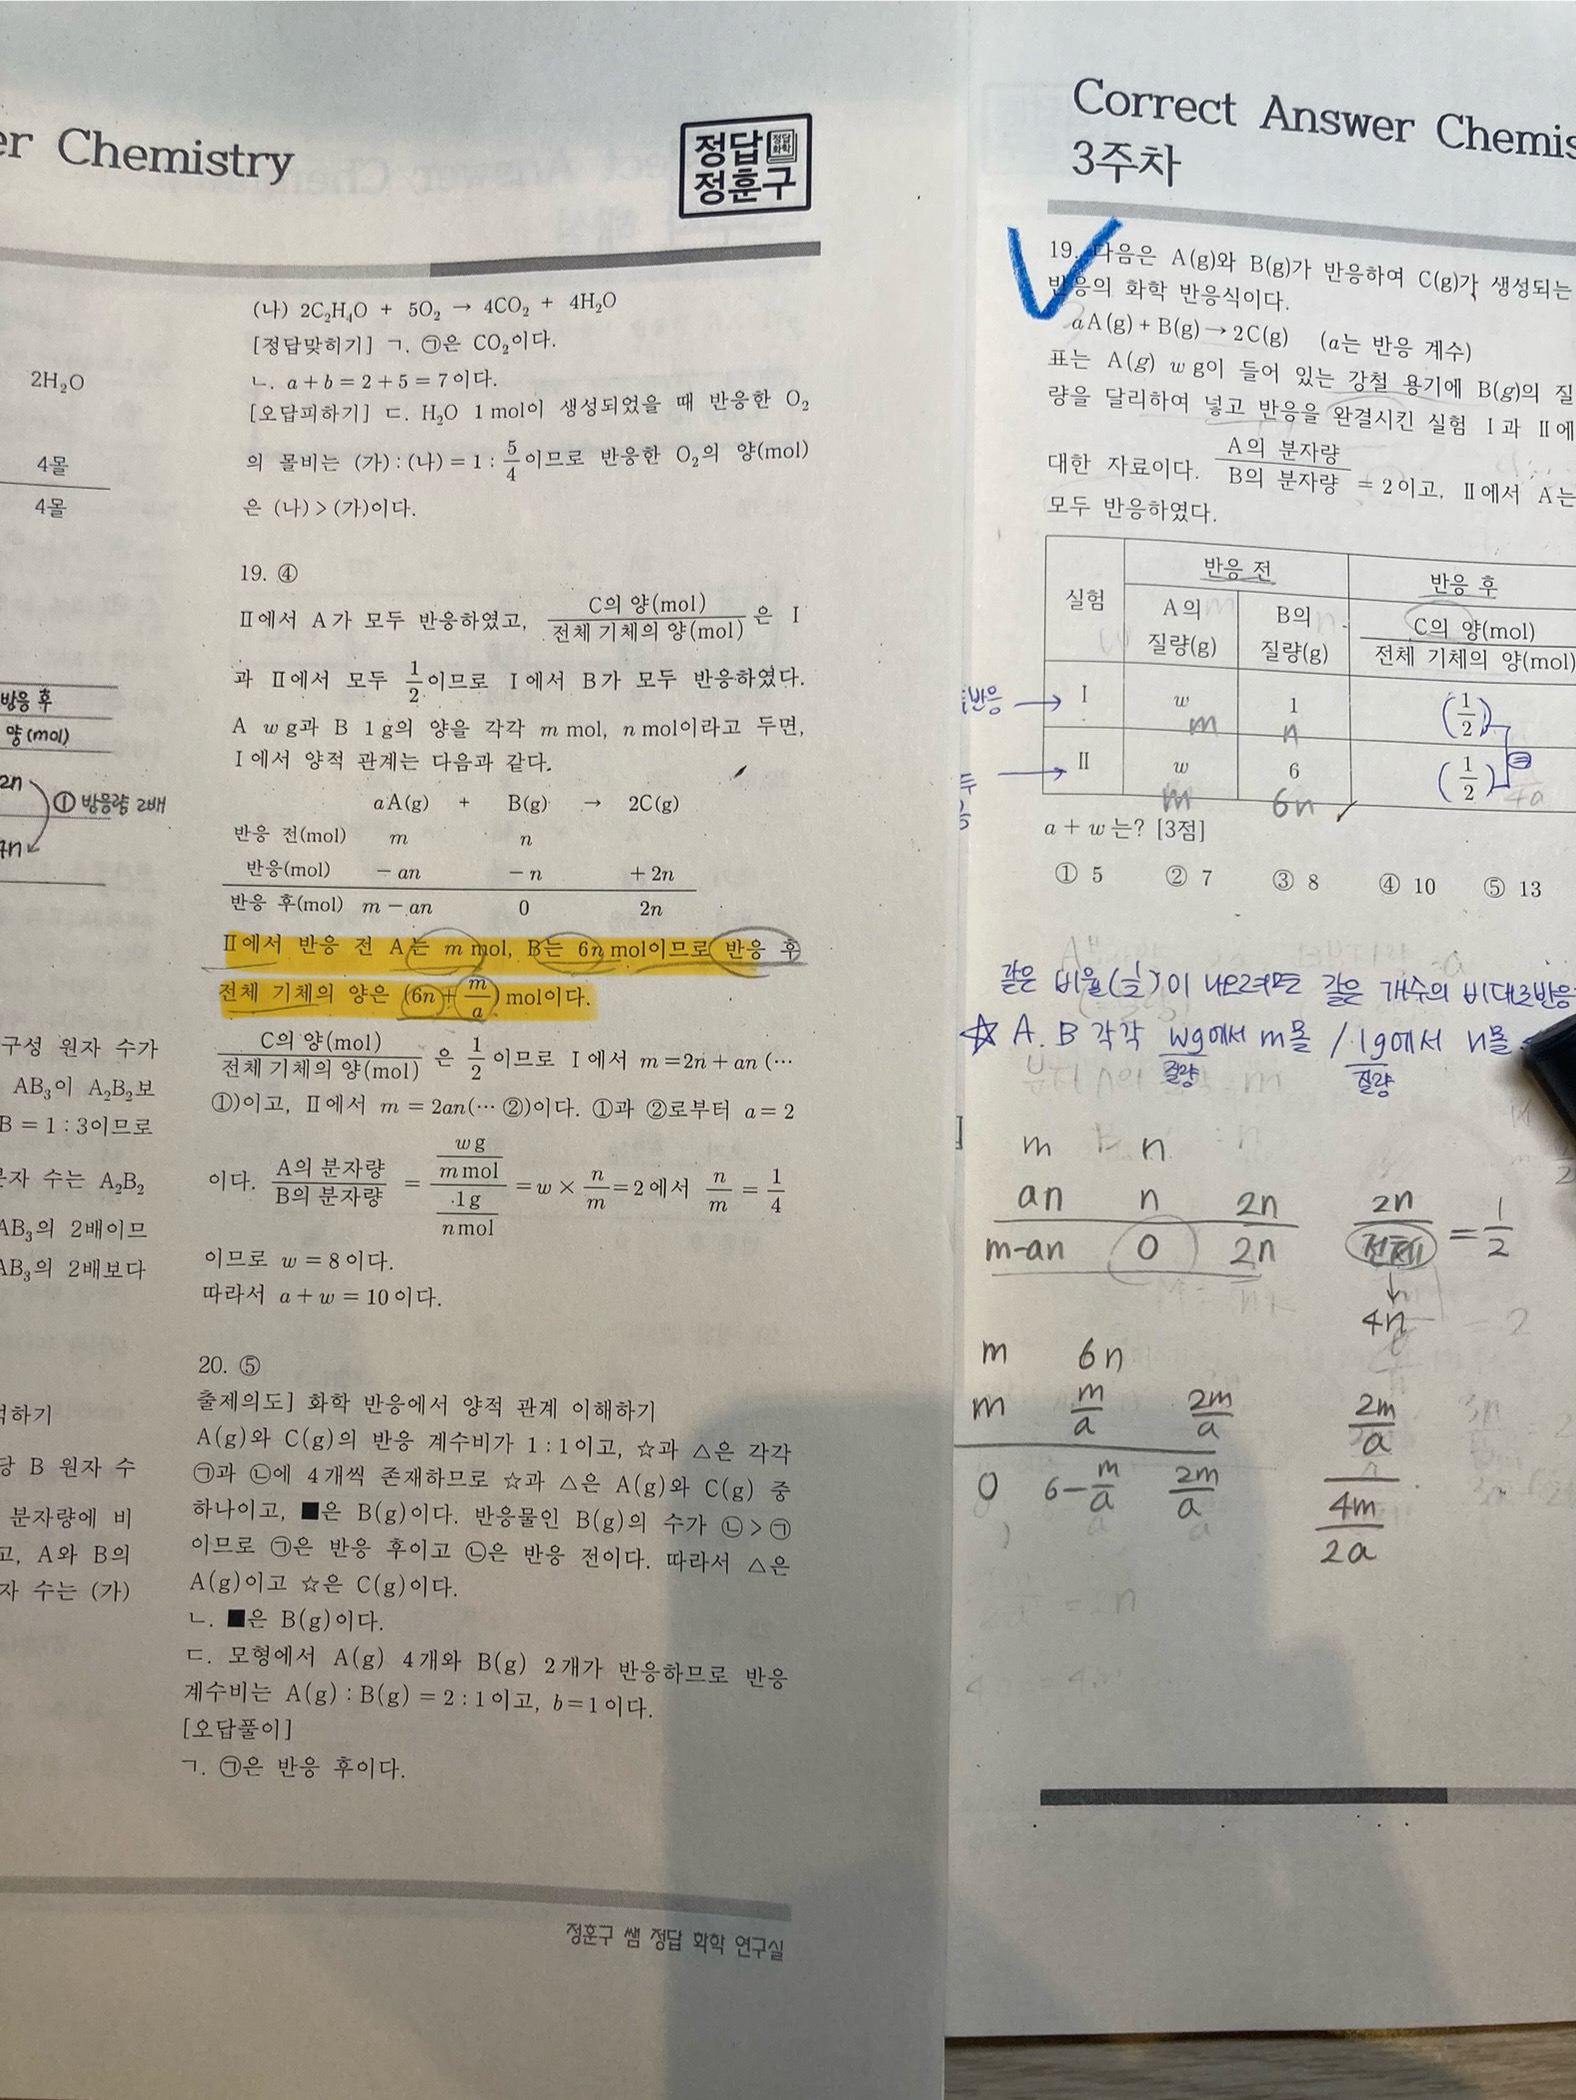 er Chemistry
정답
정답
화학
정훈구
2H₂O
4몰
4몰
방응 후
양(mol)
2n
① 방응량 2배
7n
구성 원자 수가
AB₃이 A₂B₂보
B = 1 : 3이므로
자 수는 A₂B₂
AB₃의 2배이므
AB₃의 2배보다
하기
당 B 원자 수
분자량에 비
고, A와 B의
자 수는 (가)
(나) 2C₂H₄O + 5O₂ → 4CO₂ + 4H₂O
[정답맞히기] ㄱ. ㉠은 CO₂이다.
ㄴ. a + b = 2 + 5 = 7이다.
[오답피하기] ㄷ. H₂O 1 mol이 생성되었을 때 반응한 O₂
의 몰비는 (가) : (나) = 1 : 5/4 이므로 반응한 O₂의 양(mol)
은 (나) > (가)이다.
19. ④
Ⅱ에서 A가 모두 반응하였고, C의 양(mol)/전체 기체의 양(mol) 은 Ⅰ
과 Ⅱ에서 모두 1/2이므로 Ⅰ에서 B가 모두 반응하였다.
A w g과 B 1 g의 양을 각각 m mol, n mol이라고 두면,
Ⅰ에서 양적 관계는 다음과 같다.
aA(g) + B(g) → 2C(g)
반응 전(mol) m n
반응(mol) − an − n + 2n
반응 후(mol) m − an 0 2n
Ⅱ에서 반응 전 A는 m mol, B는 6n mol이므로 반응 후
전체 기체의 양은 (6n + m/a) mol이다.
C의 양(mol)/전체 기체의 양(mol) 은 1/2 이므로 Ⅰ에서 m = 2n + an (…
①)이고, Ⅱ에서 m = 2an(… ②)이다. ①과 ②로부터 a = 2
이다. A의 분자량/B의 분자량 = (w g/m mol)/(1 g/n mol) = w × n/m = 2 에서 n/m = 1/4
이므로 w = 8이다.
따라서 a + w = 10이다.
20. ⑤
출제의도] 화학 반응에서 양적 관계 이해하기
A(g)와 C(g)의 반응 계수비가 1 : 1이고, ☆과 △은 각각
㉠과 ㉡에 4개씩 존재하므로 ☆과 △은 A(g)와 C(g) 중
하나이고, ■은 B(g)이다. 반응물인 B(g)의 수가 ㉡ > ㉠
이므로 ㉠은 반응 후이고 ㉡은 반응 전이다. 따라서 △은
A(g)이고 ☆은 C(g)이다.
ㄴ. ■은 B(g)이다.
ㄷ. 모형에서 A(g) 4개와 B(g) 2개가 반응하므로 반응
계수비는 A(g) : B(g) = 2 : 1이고, b = 1이다.
[오답풀이]
ㄱ. ㉠은 반응 후이다.
정훈구 쌤 정답 화학 연구실
Correct Answer Chemis
3주차
19. 다음은 A(g)와 B(g)가 반응하여 C(g)가 생성되는
반응의 화학 반응식이다.
aA(g) + B(g) → 2C(g) (a는 반응 계수)
표는 A(g) w g이 들어 있는 강철 용기에 B(g)의 질
량을 달리하여 넣고 반응을 완결시킨 실험 Ⅰ과 Ⅱ에
대한 자료이다. A의 분자량/B의 분자량 = 2이고, Ⅱ에서 A는
모두 반응하였다.
실험 반응 전 반응 후
A의 질량(g) B의 질량(g) C의 양(mol)/전체 기체의 양(mol)
반응 → Ⅰ w 1 (1/2)
m n
→ Ⅱ w 6 (1/2)
m 6n
a + w는? [3점]
① 5 ② 7 ③ 8 ④ 10 ⑤ 13
같은 비율(1/2)이 나오려면 같은 개수의 비대로 반응
☆ A. B 각각 wg에서 m몰 / 1g에서 n몰
질량 질량
m n
an n 2n 2n/전체 = 1/2
m-an 0 2n
↓
4n
m 6n
m m/a 2m/a
0 6-m/a 2m/a
2m/a
4m/2a